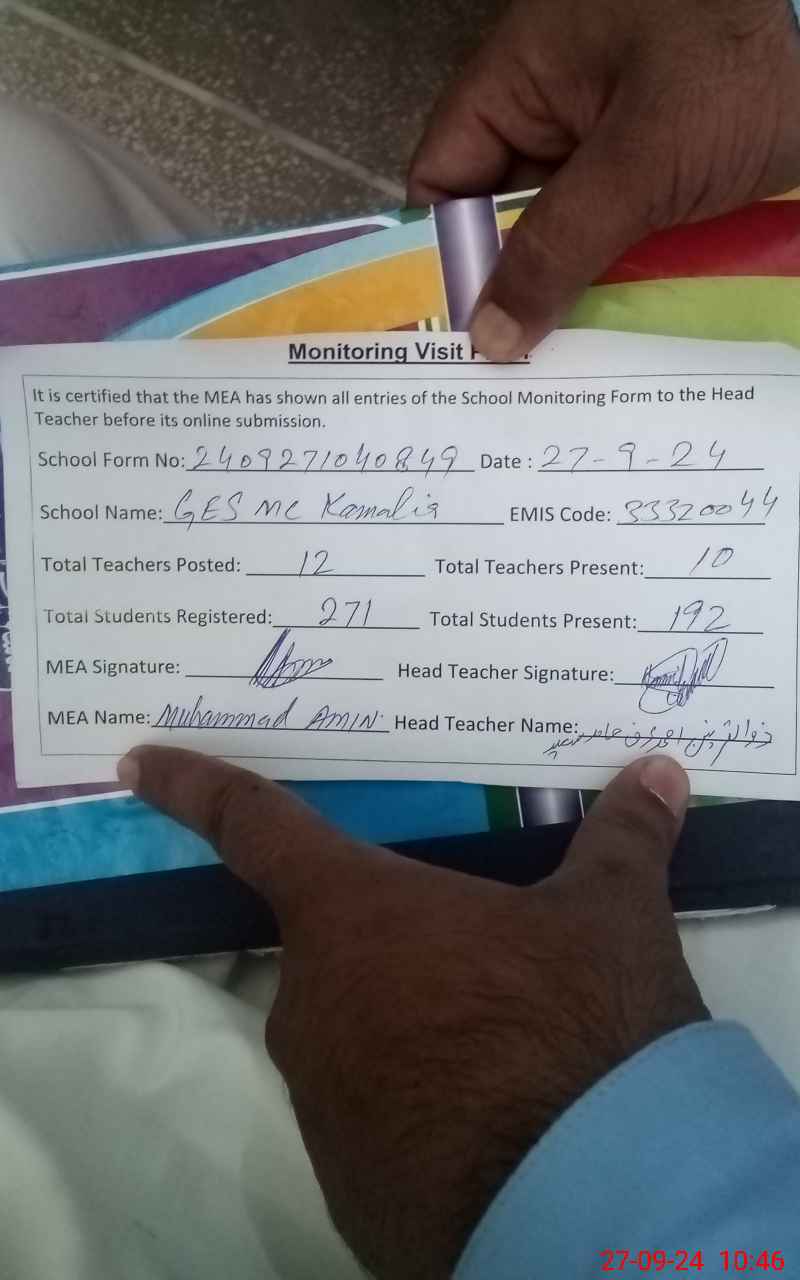 Monitoring Visit
It is certified that the MEA has shown all entries of the School Monitoring Form to the Head
Teacher before its online submission.
School Form No: 2409271040849 Date : 27-9-24
School Name: GES MC Kamalia EMIS Code: 33320044
Total Teachers Posted: 12 Total Teachers Present: 10
Total Students Registered: 271 Total Students Present: 192
MEA Signature: Head Teacher Signature:
MEA Name: Muhammad AMIN Head Teacher Name:
27-09-24 10:46